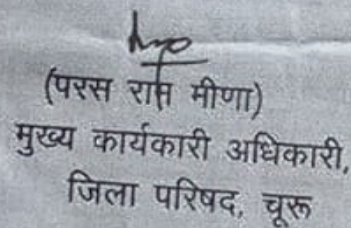 (परस राम मीणा)
मुख्य कार्यकारी अधिकारी,
जिला परिषद, चूरू